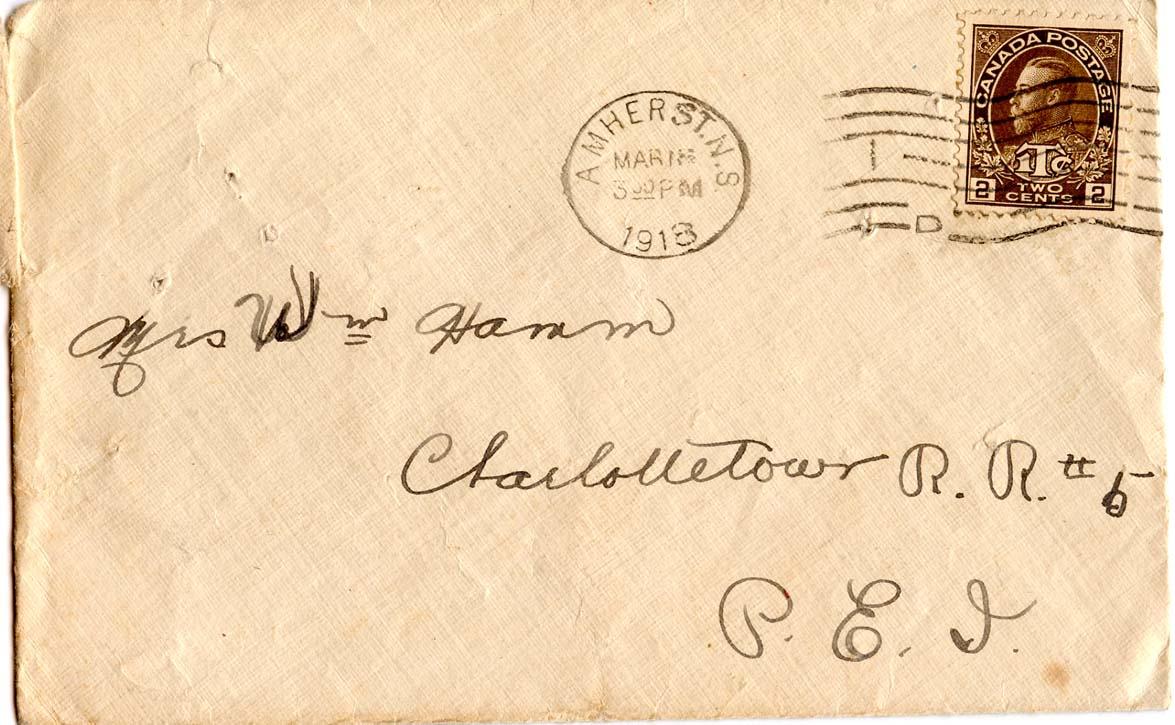 CANADA POSTAGE
1Tc
2 TWO CENTS 2
AMHERST. N.S
MAR
3 00 PM
1918
D
Mrs Wm Hamm
Charlottetown R. R. # 5
P. E. I.